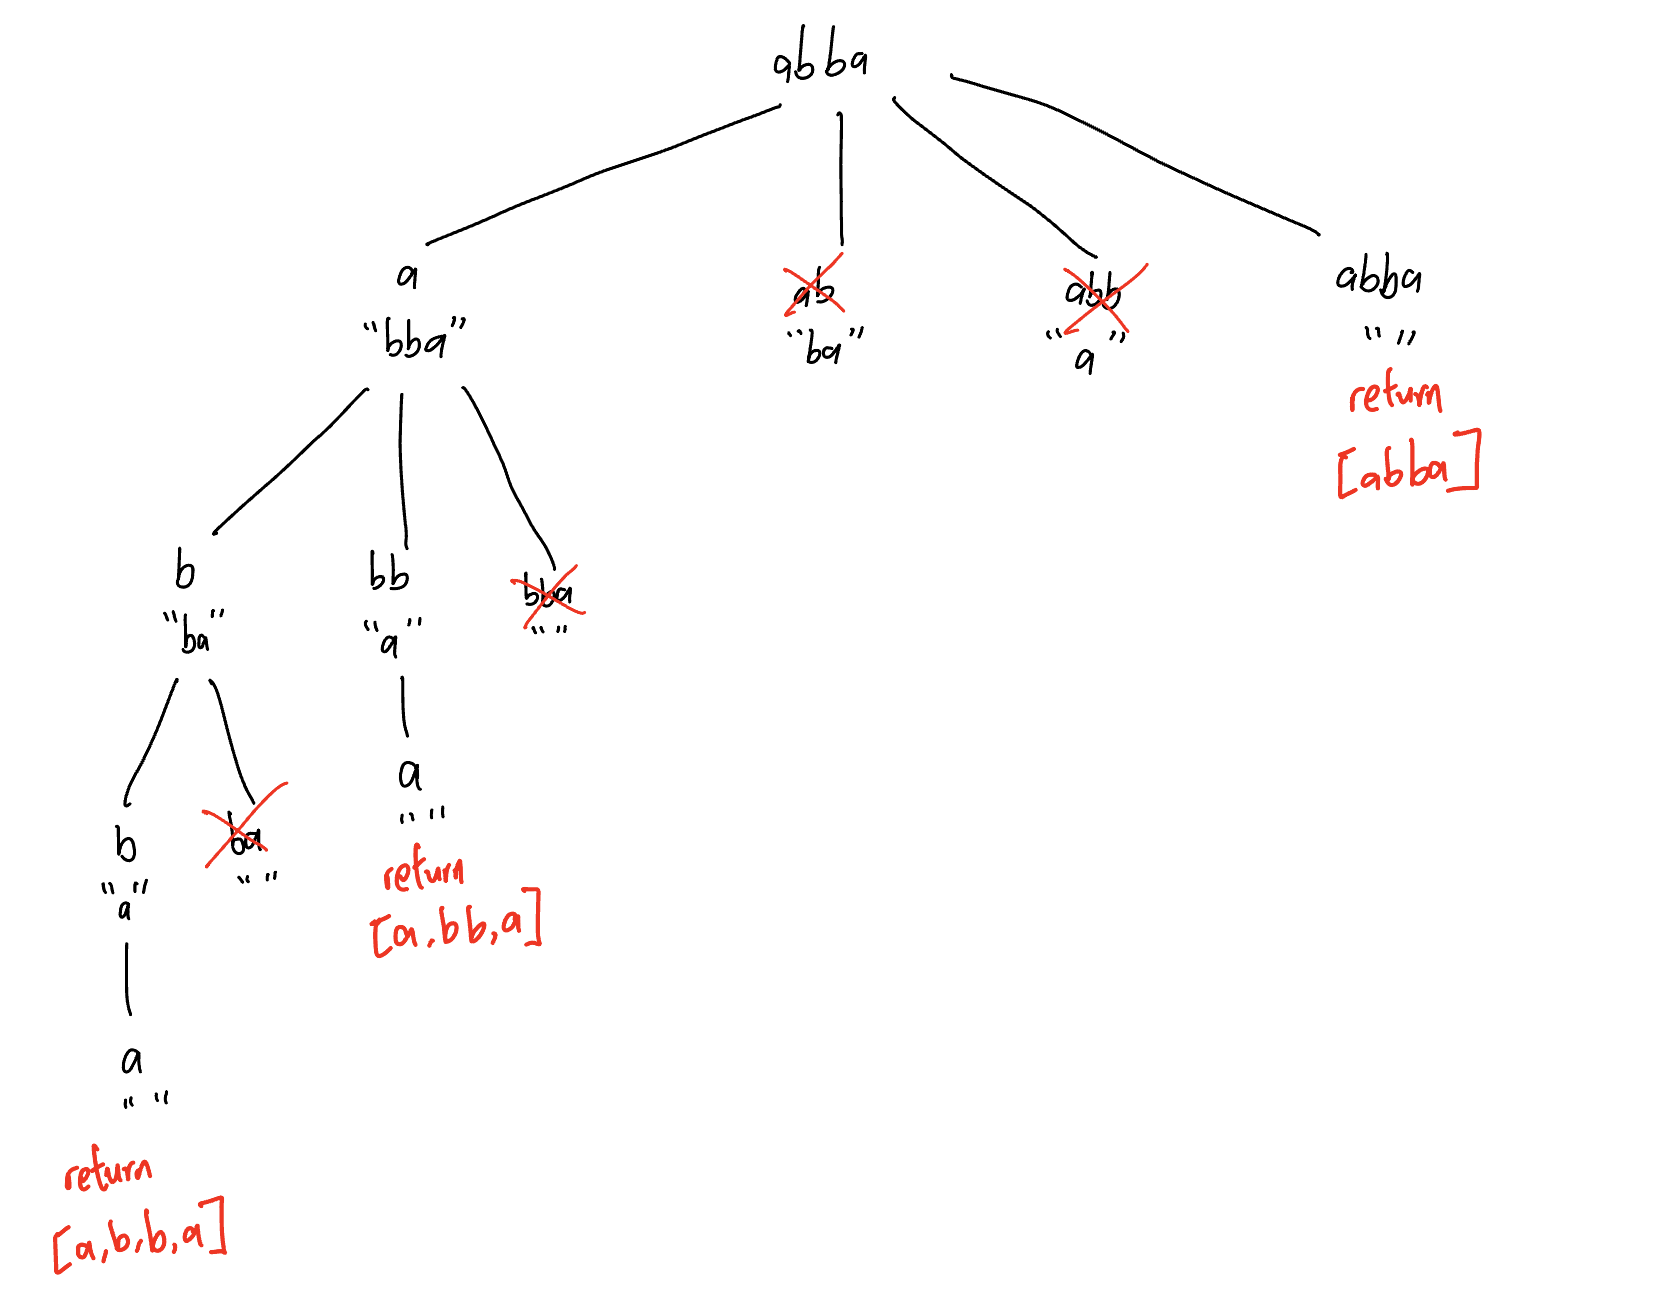 abba
a
"bba"
ab
"ba"
abb
"a"
abba
" "
return
[abba]
b
"ba"
bb
"a"
bba
" "
b
"a"
ba
" "
a
" "
return
[a,bb,a]
a
" "
return
[a,b,b,a]